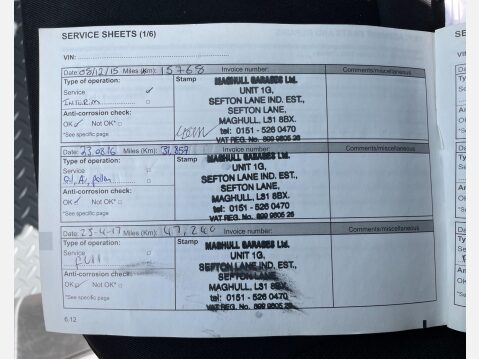 SERVICE SHEETS (1/6)
VIN:
Date: 08/12/15 Miles (Km): 15768 Invoice number: Comments/miscellaneous
Type of operation: Stamp MAGHULL GARAGES Ltd.
Service ✓ UNIT 1G,
INTERIM SEFTON LANE IND. EST.,
Anti-corrosion check: SEFTON LANE,
OK ✓ Not OK* MAGHULL, L31 8BX.
*See specific page tel: 0151 - 526 0470
VAT REG. No. 899 9805 26
Date: 23.08.16 Miles (Km): 31,859 Invoice number: Comments/miscellaneous
Type of operation: Stamp MAGHULL GARAGES Ltd.
Service UNIT 1G,
Oil, Air, pollen SEFTON LANE IND. EST.,
Anti-corrosion check: SEFTON LANE,
OK ✓ Not OK* MAGHULL, L31 8BX.
*See specific page tel: 0151 - 526 0470
VAT REG. No. 899 9805 26
Date: 25-4-17 Miles (Km): 47,240 Invoice number: Comments/miscellaneous
Type of operation: Stamp MAGHULL GARAGES Ltd.
Service UNIT 1G,
Full SEFTON LANE IND. EST.,
Anti-corrosion check: SEFTON LANE,
OK ✓ Not OK* MAGHULL, L31 8BX.
*See specific page tel: 0151 - 526 0470
VAT REG. No. 899 9805 26
6.12